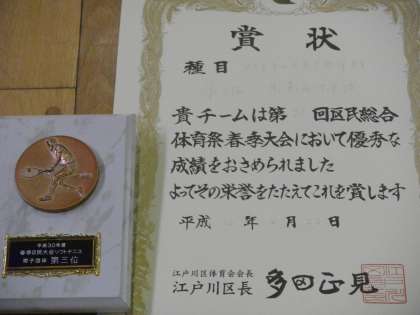 賞状
種目
貴チームは第 回区民総合
体育祭春季大会において優秀な
成績をおさめられました
よってその栄誉をたたえてこれを賞します
平成 年 月 日
江戸川区体育会会長
江戸川区長 多田正見
平成30年度
春季区民大会ソフトテニス
男子団体 第三位